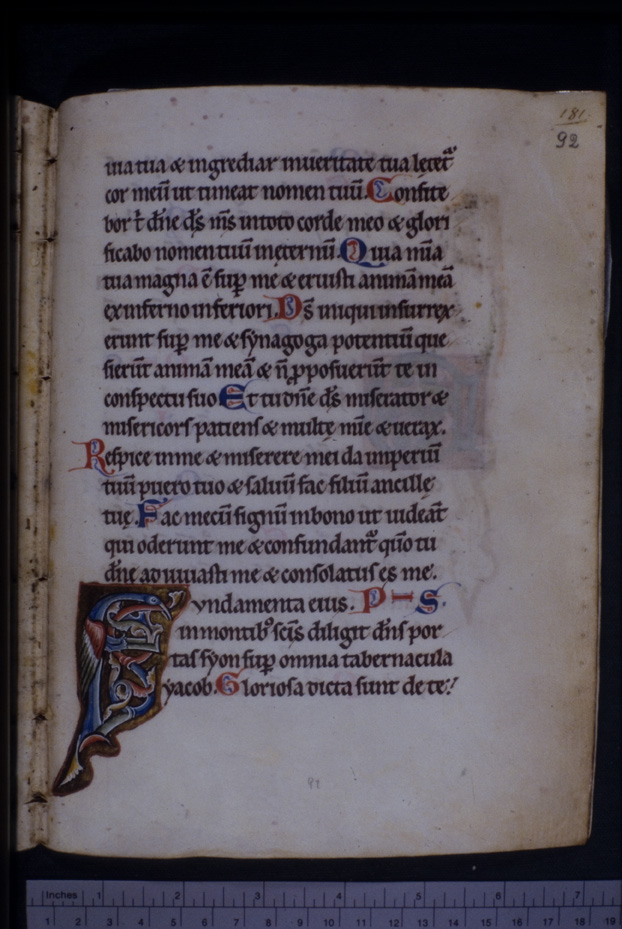 181
92
uia tua & ingrediar inueritate tua lęteť
cor meū ut timeat nomen tuū. Confite
bor t̄ dn̄e ds̄ ms̄ intoto corde meo & glori
ficabo nomen tuū inęternū. Quia mīa
tua magna ē sup̱ me & eruisti animā meā
exinferno inferiori. Ds̄ iniqui insurrex
erunt sup̱ me & synagoga potentiū que
sierūt animā meā & n̄ p̱posuerūt te in
conspectu suo Et tu dn̄e ds̄ miserator &
misericors patiens & multę mīe & uerax.
Respice inme & miserere mei da imperiū
tuū puero tuo & saluū fac filiū ancillę
tuę. Fac mecū signū inbono ut uideāt
qui oderunt me & confundant᷑ qm̄o tu
dn̄e adiuuasti me & consolatus es me.
Fvndamenta eius. P S.
inmontibꝰ sc̄is diligit dn̄s por
tas syon sup̱ omnia tabernacula
yacob. Gloriosa dicta sunt de te:
92
Inches 1 2 3 4 5 6 7
1 2 3 4 5 6 7 8 9 10 11 12 13 14 15 16 17 18 19